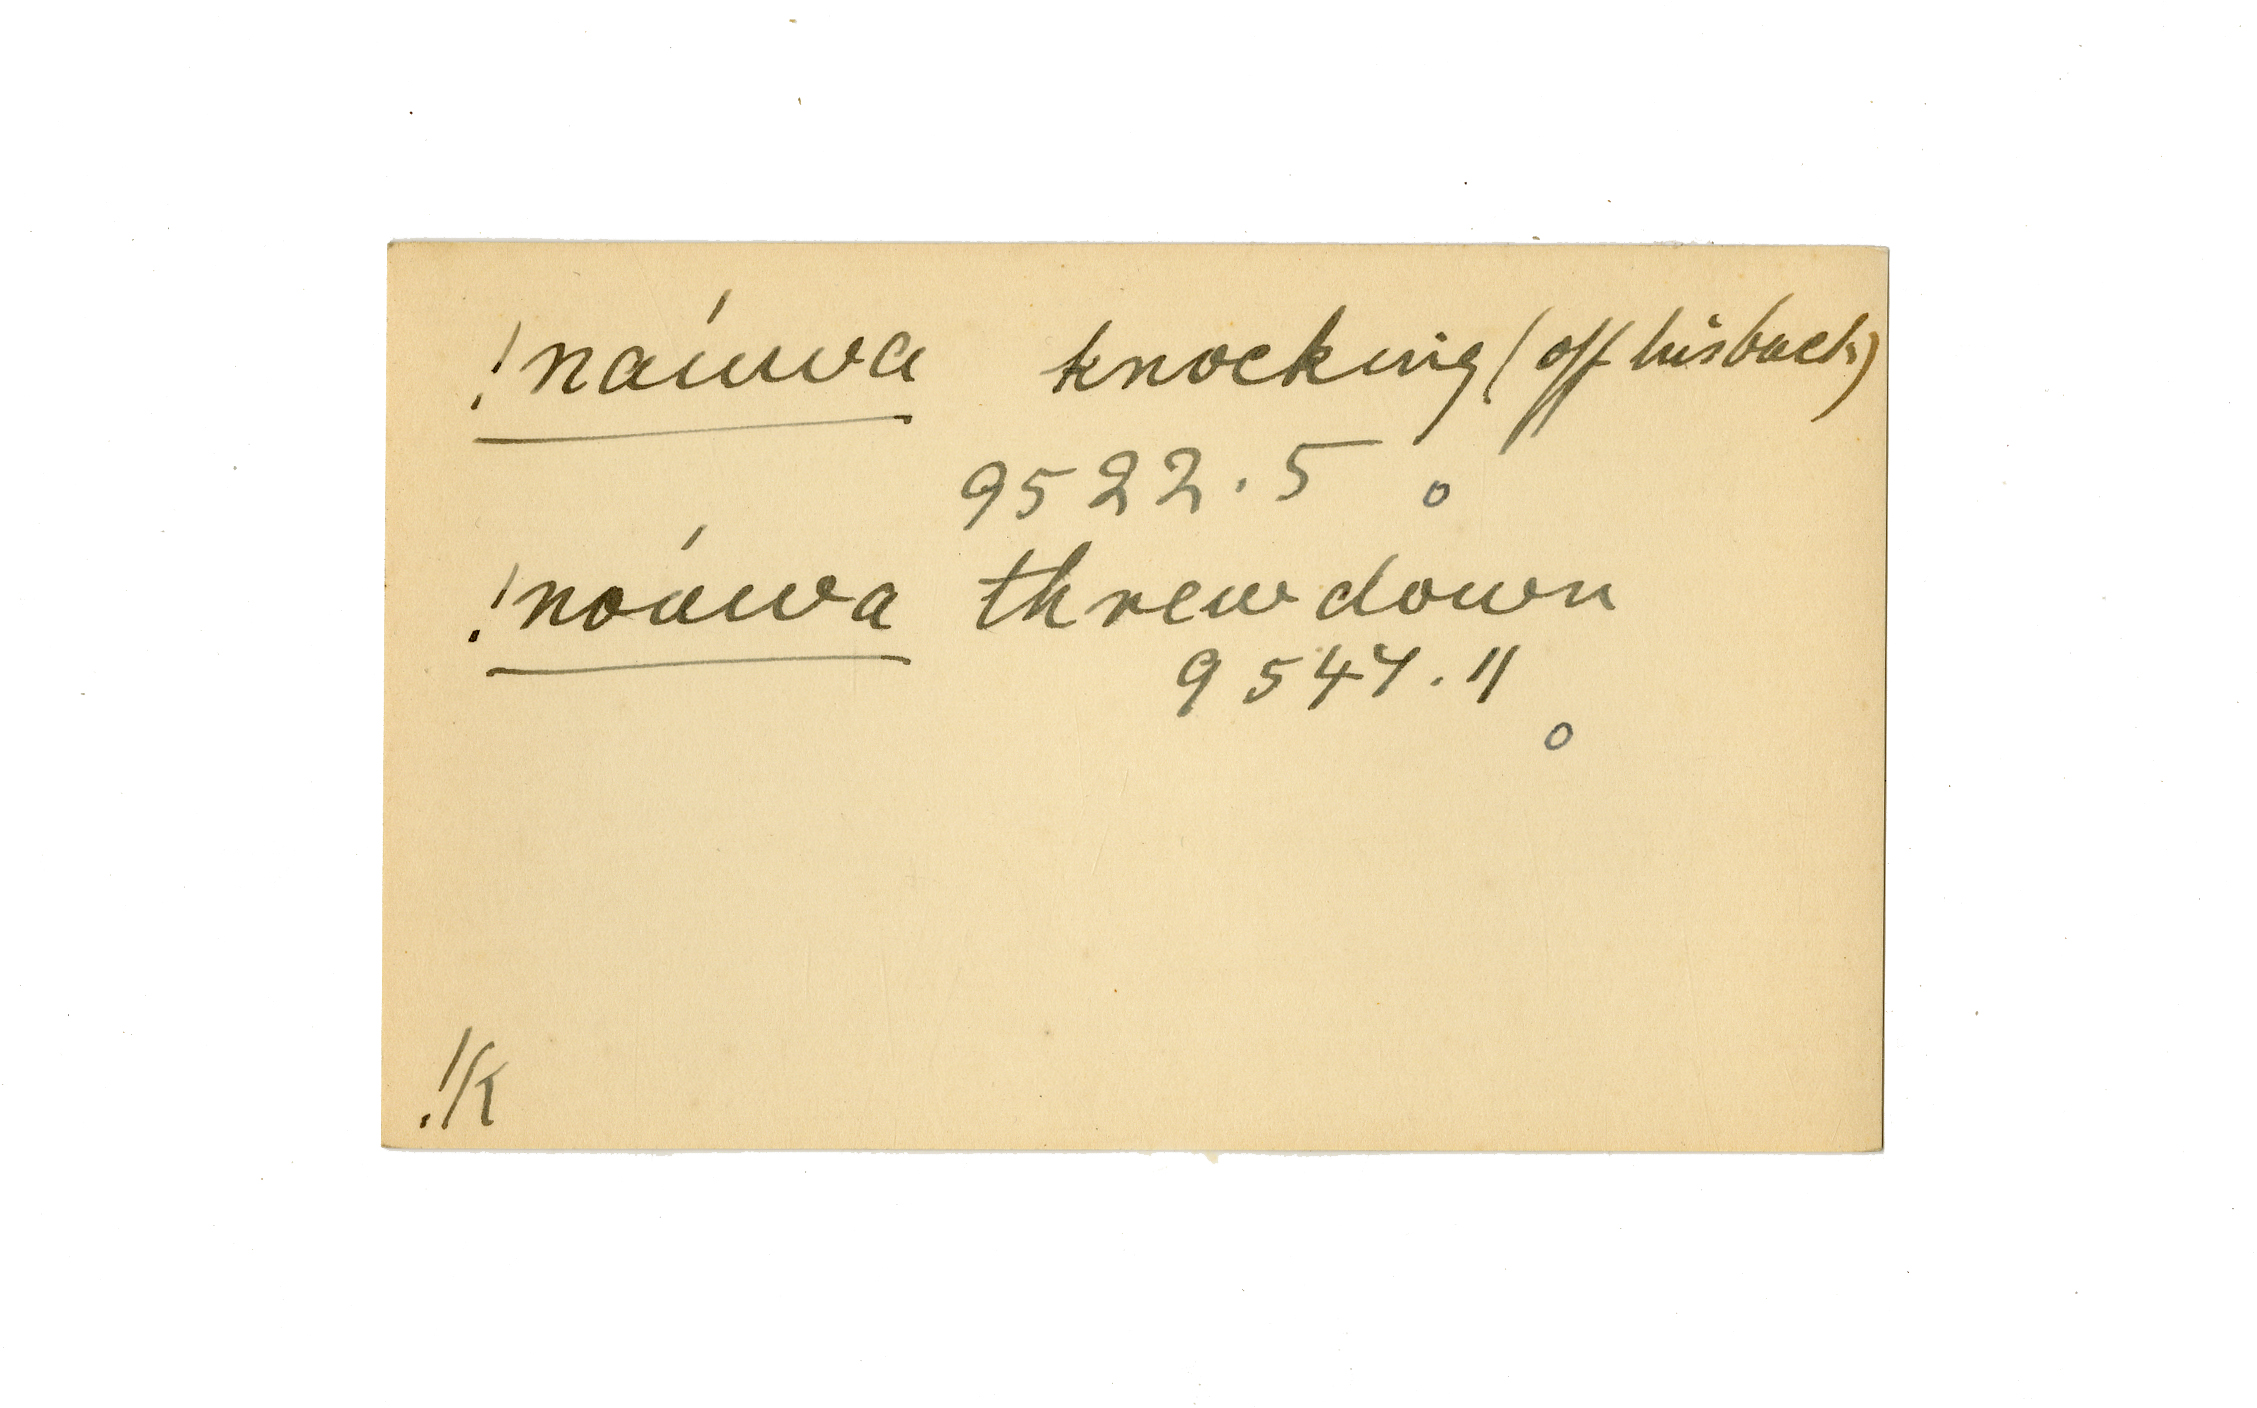 !naúwa knocking (off his back)
9522.5 o
!noúwa threw down
9547.11
o
!K